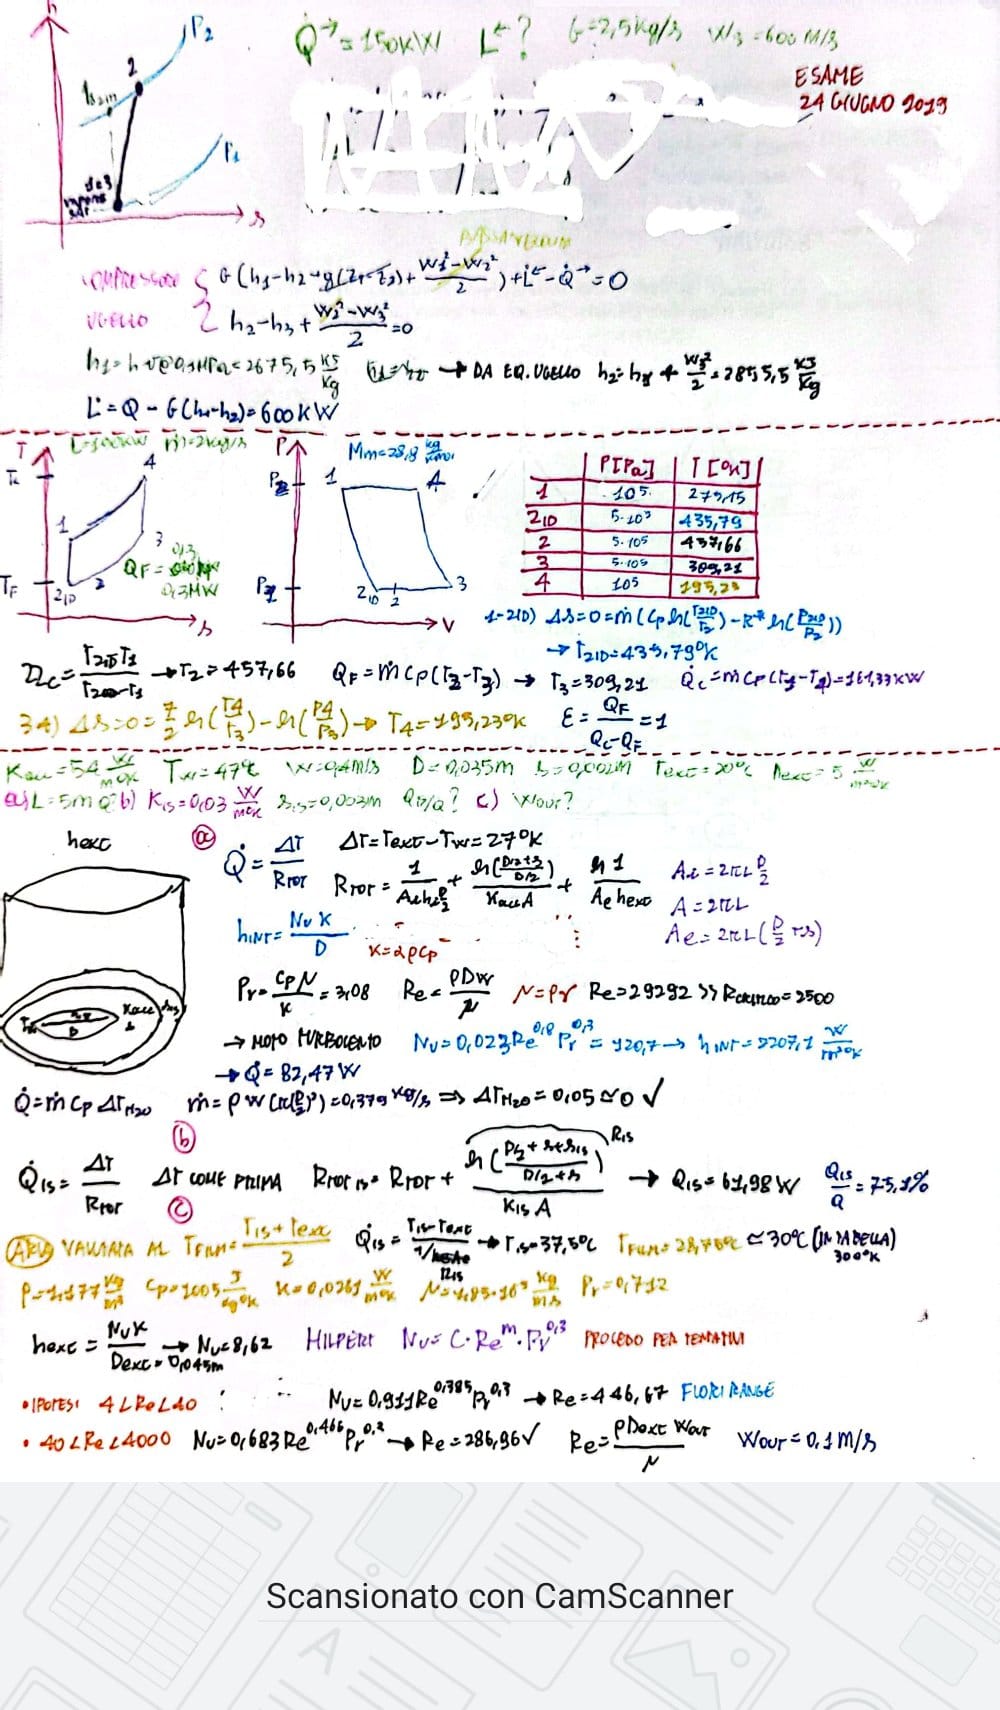 P2
2
P1
s
Q̇→ = 150KW L←? G=2,5Kg/s W3=600 M/s
ESAME
24 GIUGNO 2019
COMPRESSORE { G(h1-h2+g(z1-z2)+ (W1²-W2²)/2 )+L̇←-Q̇→=0
UGELLO h2-h3+ (W2²-W3²)/2 =0
→ DA EQ. UGELLO h2= + W3²/2 = 2855,5 KJ/Kg
L̇=Q-G(h1-h2)=600KW
T
4
1
3
2ID 2
TF
QF=
0,3MW
s
P
Mm=28,8 kg/kmol
1 4
2ID 2 3
V
P[Pa] T[°K]
1 10⁵ 279,15
2ID 5·10⁵ 435,79
2 5·10⁵ 457,66
3 5·10⁵ 309,21
4 10⁵ 195,23
1-2ID) ΔS=0=ṁ(Cp ln(T2ID/T2)-R* ln(P2ID/P2))
→ T2ID=435,79°K
→T2=457,66 QF=ṁCp(T2-T3) → T3=309,21 Q̇c=ṁCp(T1-T4)=161,33KW
34) ΔS=0= 7/2 ln(T4/T3)-ln(P4/P3) → T4=195,23°K ε= QF/(Qc-QF) =1
Kacc=54 W/m°K Tw=47°C W=0,4M/s D=0,035m s=0,002M Text=20°C hext=5 W/m²°K
a) L=5m Q? b) Kis=0,03 W/m°K sis=0,003m Qis/Q? c) Wout?
hext
ⓐ Q̇= ΔT/RTOT ΔT=Text-Tw=27°K
RTOT= + ln((D/2+s)/(D/2))/(Kacc A) + 1/(Ae hext)
Ai=2πL D/2
A=2πL
Ae=2πL(D/2+s)
hINT= Nu K/D K=αρCp
Pr= Cpμ/K =3,08 Re= ρDW/μ μ=ρν Re=29292 >> Recritico=2500
→ MOTO TURBOLENTO Nu=0,023Re^0,8 Pr^0,3 = 120,7 → hINT=2207,1 W/m²°K
→ Q̇=82,47W
Q̇=ṁCpΔTH2O ṁ=ρW(π(D/2)²)=0,379 Kg/s ⇒ ΔTH2O=0,05≃0 ✓
ⓑ
Q̇is= ΔT/RTOT ΔT COME PRIMA RTOT is=RTOT+ ln((D/2+s+sis)/(D/2+s))/(Kis A) Ris → Qis=61,98W Qis/Q=75,1%
ⓒ
ARIA VALUTATA AL TFILM= (Tis+Text)/2 Q̇is= → Tis=37,5°C TFILM=28,76°C ≃30°C (IN TABELLA)
300°K
ρ=1,177 Kg/m³ Cp=1005 J/Kg°K K=0,0261 W/m°K μ=1,85·10⁻⁵ Kg/ms Pr=0,712
hext= NuK/Dext=0,045m → Nu=8,62 HILPERT Nu=C·Re^m·Pr^0,3 PROCEDO PER TENTATIVI
• IPOTESI 4<Re<40 : Nu=0,911Re^0,385 Pr^0,3 → Re=446,67 FUORI RANGE
• 40<Re<4000 Nu=0,683Re^0,466 Pr^0,3 → Re=286,96 ✓ Re= ρDext Wout/μ Wout=0,1M/s
Scansionato con CamScanner